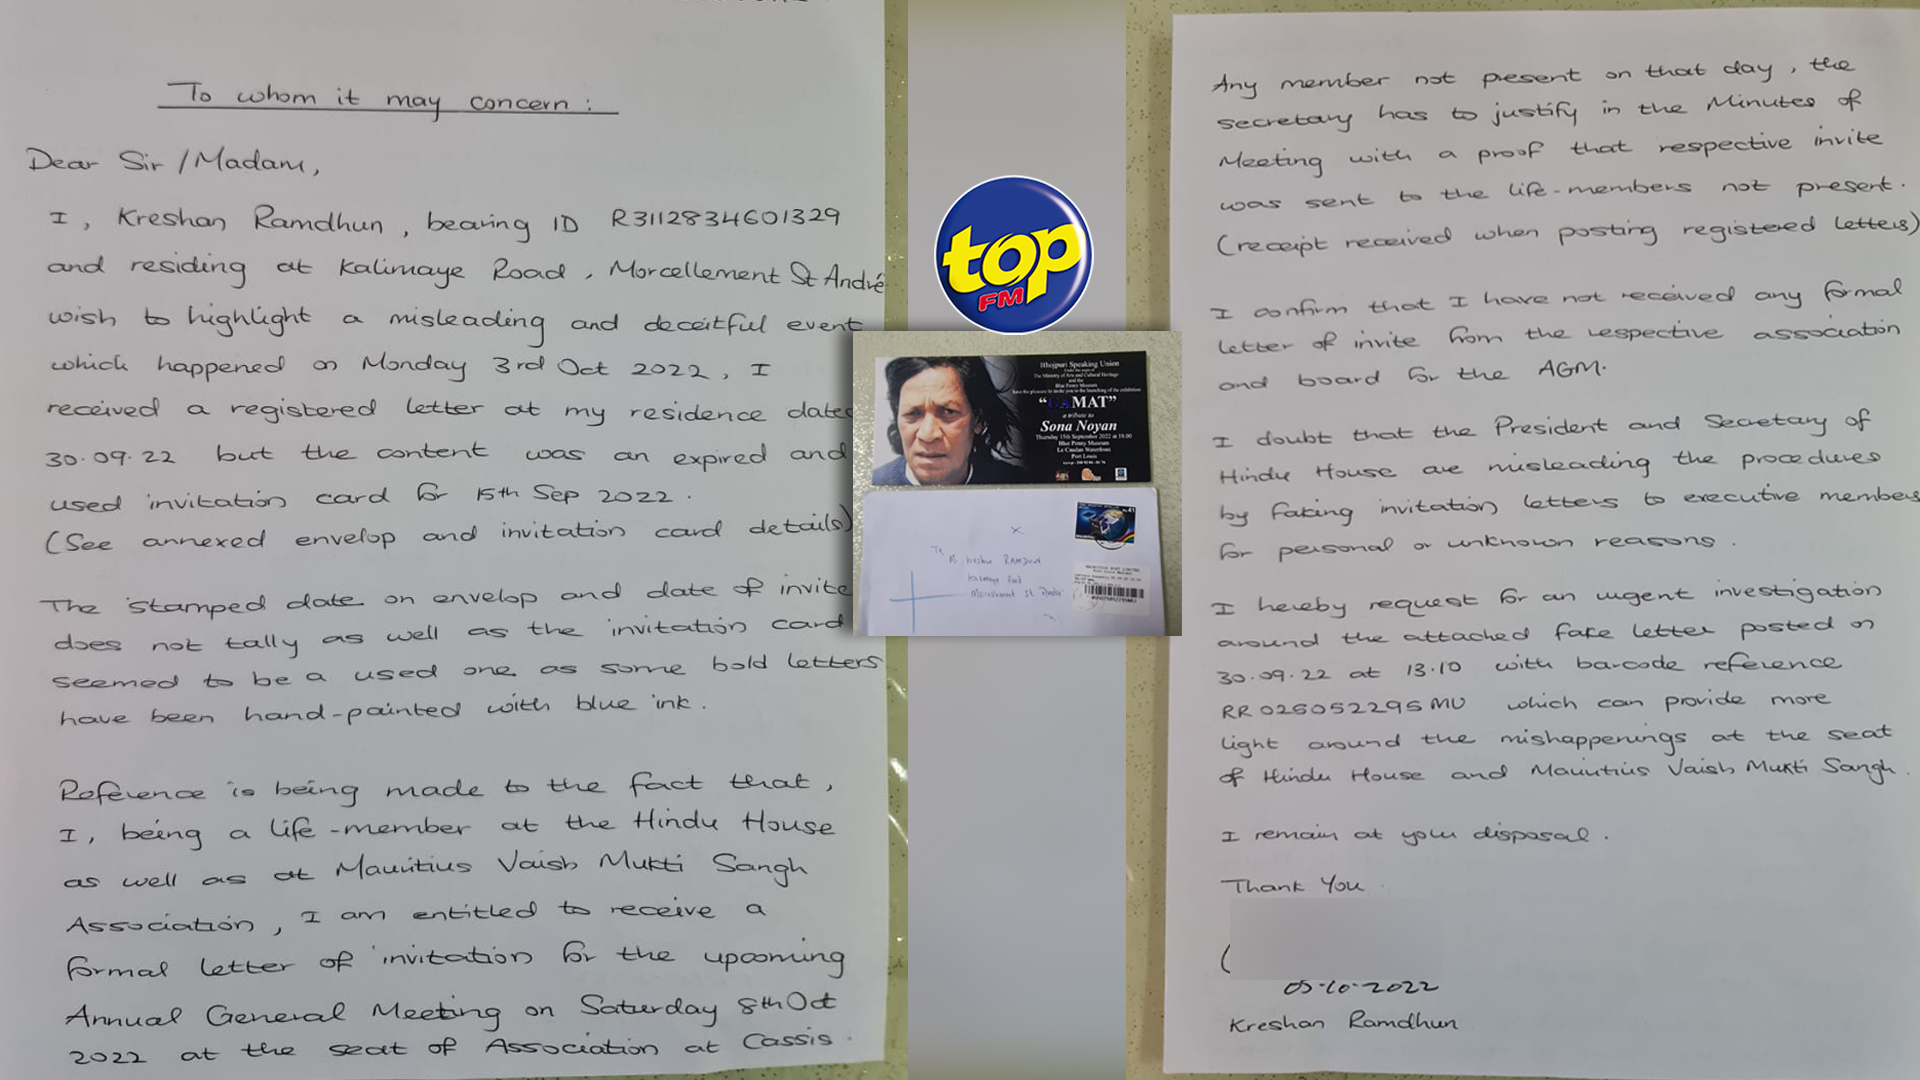 To whom it may concern :
Dear Sir / Madam,
I, Kreshan Ramdhun, bearing ID R3112834601329
and residing at Kalimaye Road, Morcellement St André
wish to highlight a misleading and deceitful event
which happened on Monday 3rd Oct 2022, I
received a registered letter at my residence dated
30.09.22 but the content was an expired and
used invitation card for 15th Sep 2022.
(See annexed envelop and invitation card details)
The stamped date on envelop and date of invite
does not tally as well as the invitation card
seemed to be a used one as some bold letters
have been hand-painted with blue ink.
Reference is being made to the fact that,
I, being a life-member at the Hindu House
as well as at Mauritius Vaish Mukti Sangh
Association, I am entitled to receive a
formal letter of invitation for the upcoming
Annual General Meeting on Saturday 8th Oct
2022 at the seat of Association at Cassis.
top
FM
Bhojpuri Speaking Union
Under the aegis of
The Ministry of Arts and Cultural Heritage
and the
Blue Penny Museum
have the pleasure to invite you to the launching of the exhibition
"GAMAT"
a tribute to
Sona Noyan
Thursday 15th September 2022 at 18.00
Blue Penny Museum
Le Caudan Waterfront
Port Louis
x
To,
Kreshan RAMDHUN
Kalimaye Road
Morcellement St Andre
RR025052295MU
Any member not present on that day, the
secretary has to justify in the Minutes of
Meeting with a proof that respective invite
was sent to the life-members not present.
(receipt received when posting registered letters)
I confirm that I have not received any formal
letter of invite from the respective association
and board for the AGM.
I doubt that the President and Secretary of
Hindu House are misleading the procedures
by faking invitation letters to executive members
for personal or unknown reasons.
I hereby request for an urgent investigation
around the attached fake letter posted on
30.09.22 at 13.10 with bar-code reference
RR025052295MU which can provide more
light around the mishappenings at the seat
of Hindu House and Mauritius Vaish Mukti Sangh.
I remain at your disposal.
Thank You
(
05-10-2022
Kreshan Ramdhun